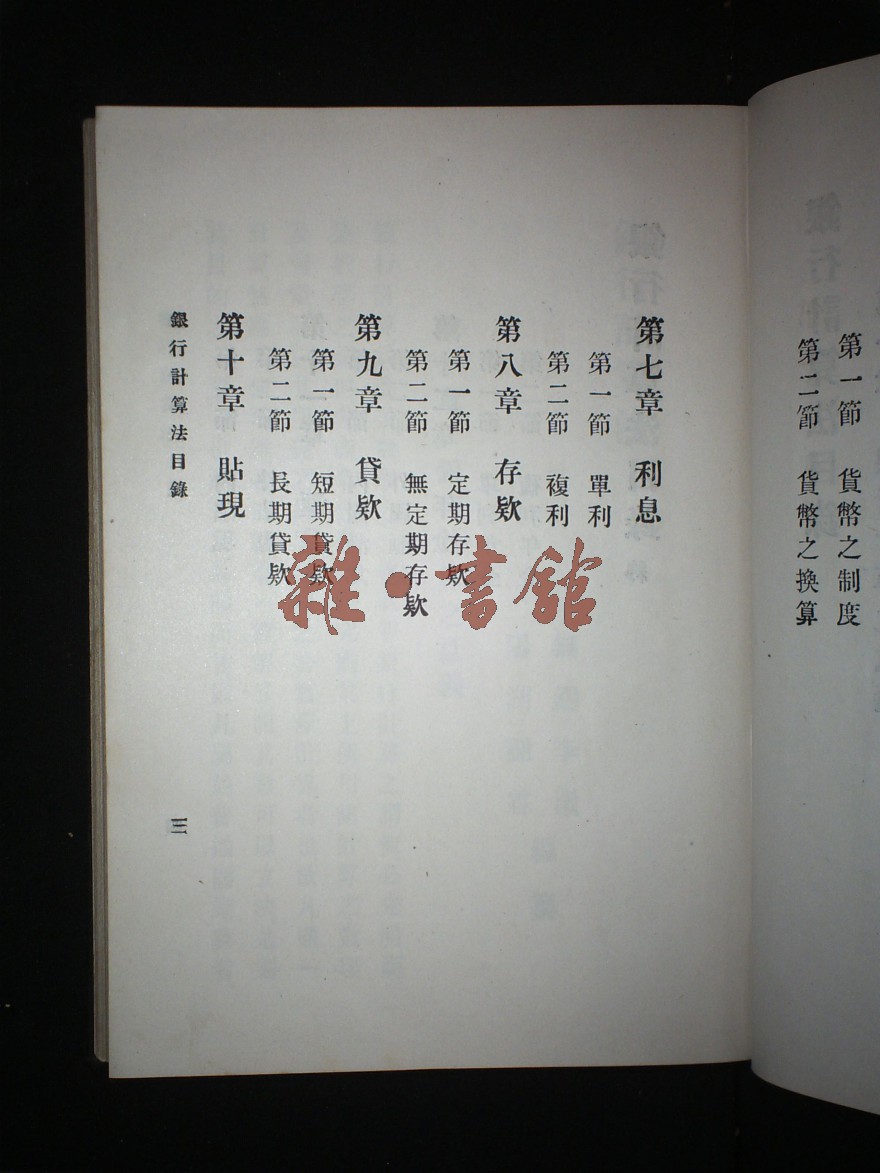 第一節 貨幣之制度
第二節 貨幣之換算
第七章 利息
第一節 單利
第二節 複利
第八章 存欵
第一節 定期存欵
第二節 無定期存欵
第九章 貸欵
第一節 短期貸欵
第二節 長期貸欵
第十章 貼現
銀行計算法目錄
三
雜·書館